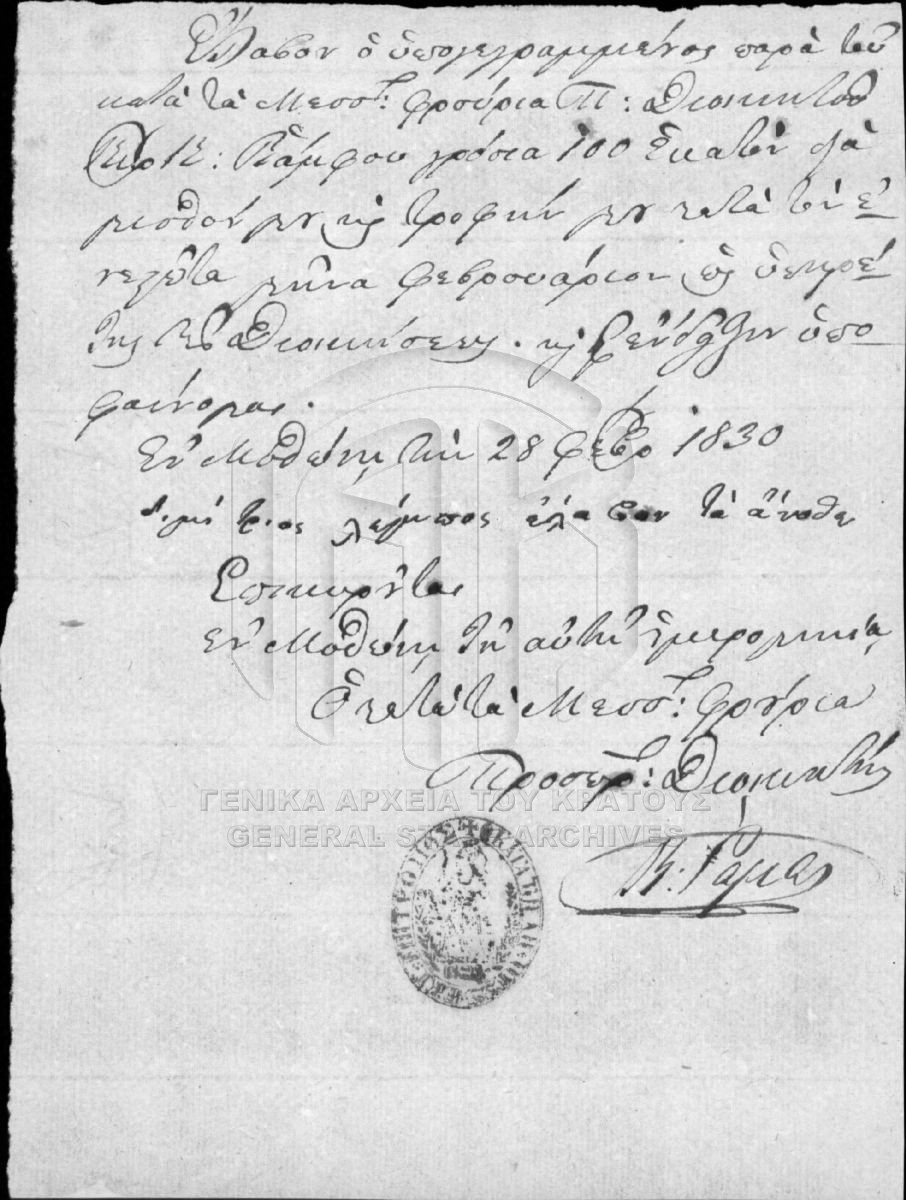 Ἔλαβον ὁ ὑπογεγραμμένος παρὰ τοῦ
κατὰ τὰ Μεσσ: φρούρια Π: Διοικητοῦ
Κυρ Κ: Ῥάμφου γρόσια 100 ἑκατὸν διὰ
μισθόν μου καὶ τροφήν μου κατὰ τὸν ἐ-
νεστῶτα μῆνα φεβρουάριον ὡς ὑπηρέ-
της τῆς Διοικήσεως. καὶ εἰς ἔνδειξιν ὑπο-
φαίνομαι.
Ἐν Μοθώνῃ τὴν 28 φεβρ 1830
διμίτριος έλαβον τὰ ἄνοθεν
Ἐπικυροῦται
Ἐν Μοθώνῃ τῇ αὐτῇ ἡμερομηνίᾳ
Ὁ κατὰ τὰ Μεσσ: φρούρια
Προσωρ: Διοικητής
Κ: Ράμφος
ΓΕΝΙΚΑ ΑΡΧΕΙΑ ΤΟΥ ΚΡΑΤΟΥΣ
GENERAL STATE ARCHIVES